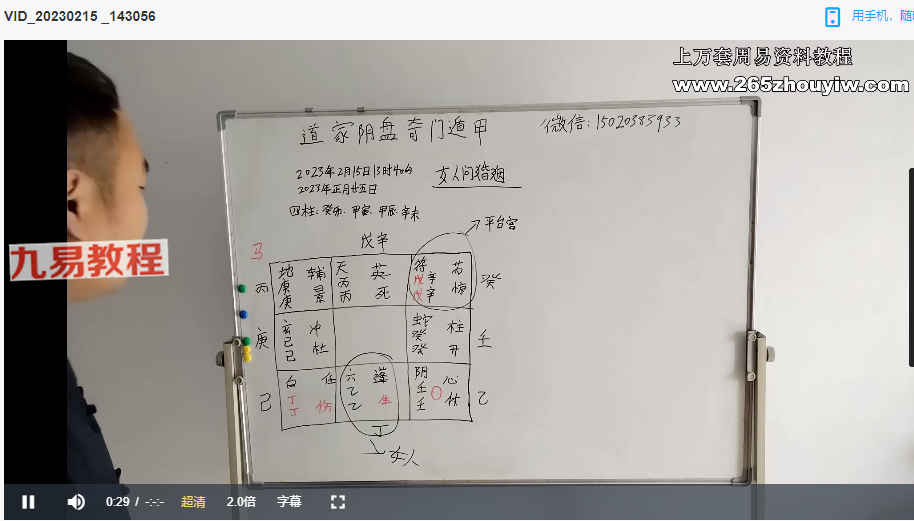 VID_20230215 _143056
用手机，随
上万套周易资料教程
www.265zhouyiw.com
道家阴盘奇门遁甲
微信：15020383933
2023年2月15日13时40分
2023年正月廿五日
女人问婚姻
四柱：癸卯、甲寅、甲辰、辛未
平台宫
戊辛
马
九易教程
丙
地 辅
庚
庚 景
天 英
丙
丙 死
符 芮
戊辛
戊辛 惊
癸
庚
玄 冲
己
己 杜
蛇 柱
癸
癸 开
壬
己
白 任
丁
丁 伤
六 蓬
乙
乙 生
阴 心
壬
壬 休
乙
丁
女人
0:29 / -:-:-
超清
2.0倍
字幕